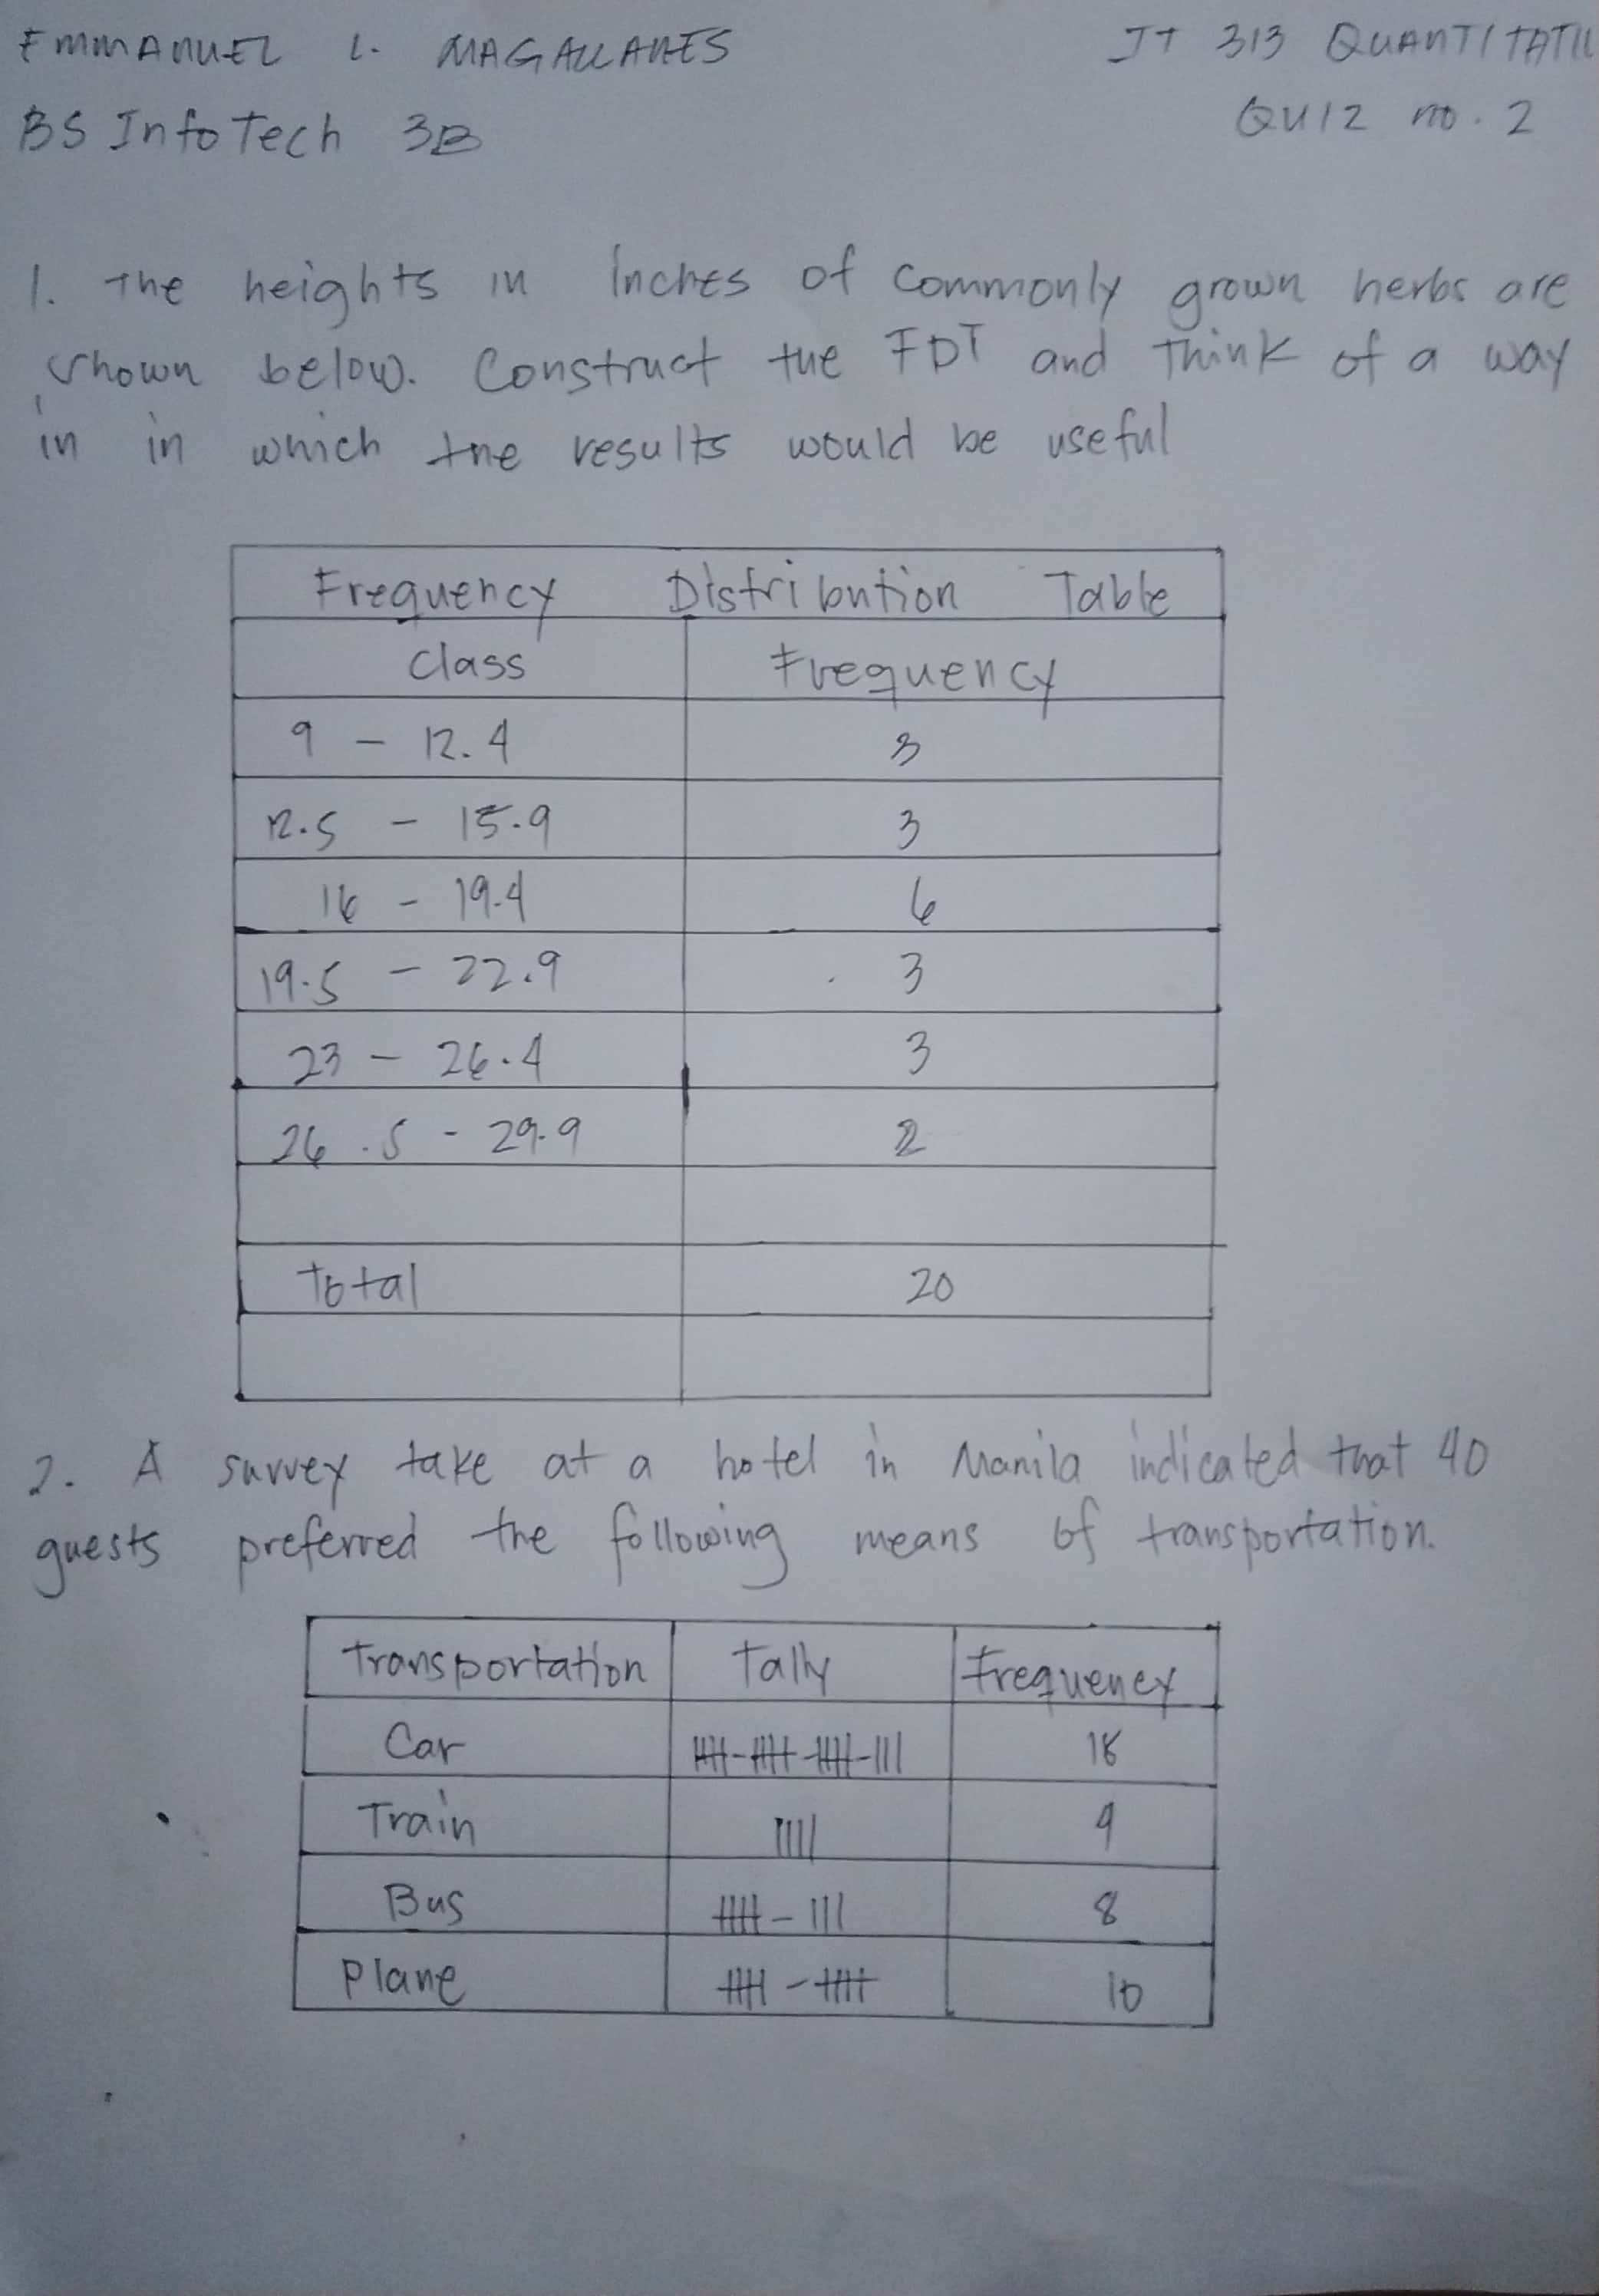 EMMANUEL L. MAGALLANES
IT 313 QUANTITATIV
BS InfoTech 3B
QUIZ no. 2
1. The heights in inches of commonly grown herbs are
shown below. Construct the FDT and think of a way
in in which the results would be useful
Frequency Distribution Table
Class Frequency
9 - 12.4 3
12.5 - 15.9 3
16 - 19.4 6
19.5 - 22.9 3
23 - 26.4 3
26.5 - 29.9 2
Total 20
2. A survey take at a hotel in Manila indicated that 40
guests preferred the following means of transportation.
Transportation Tally Frequency
Car 18
Train 4
Bus 8
Plane 10